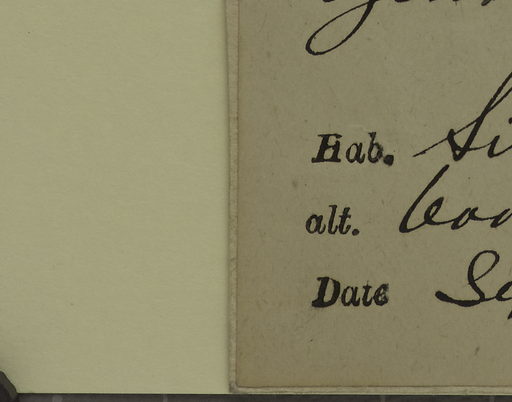 Hab. Si
alt. 600
Date Se